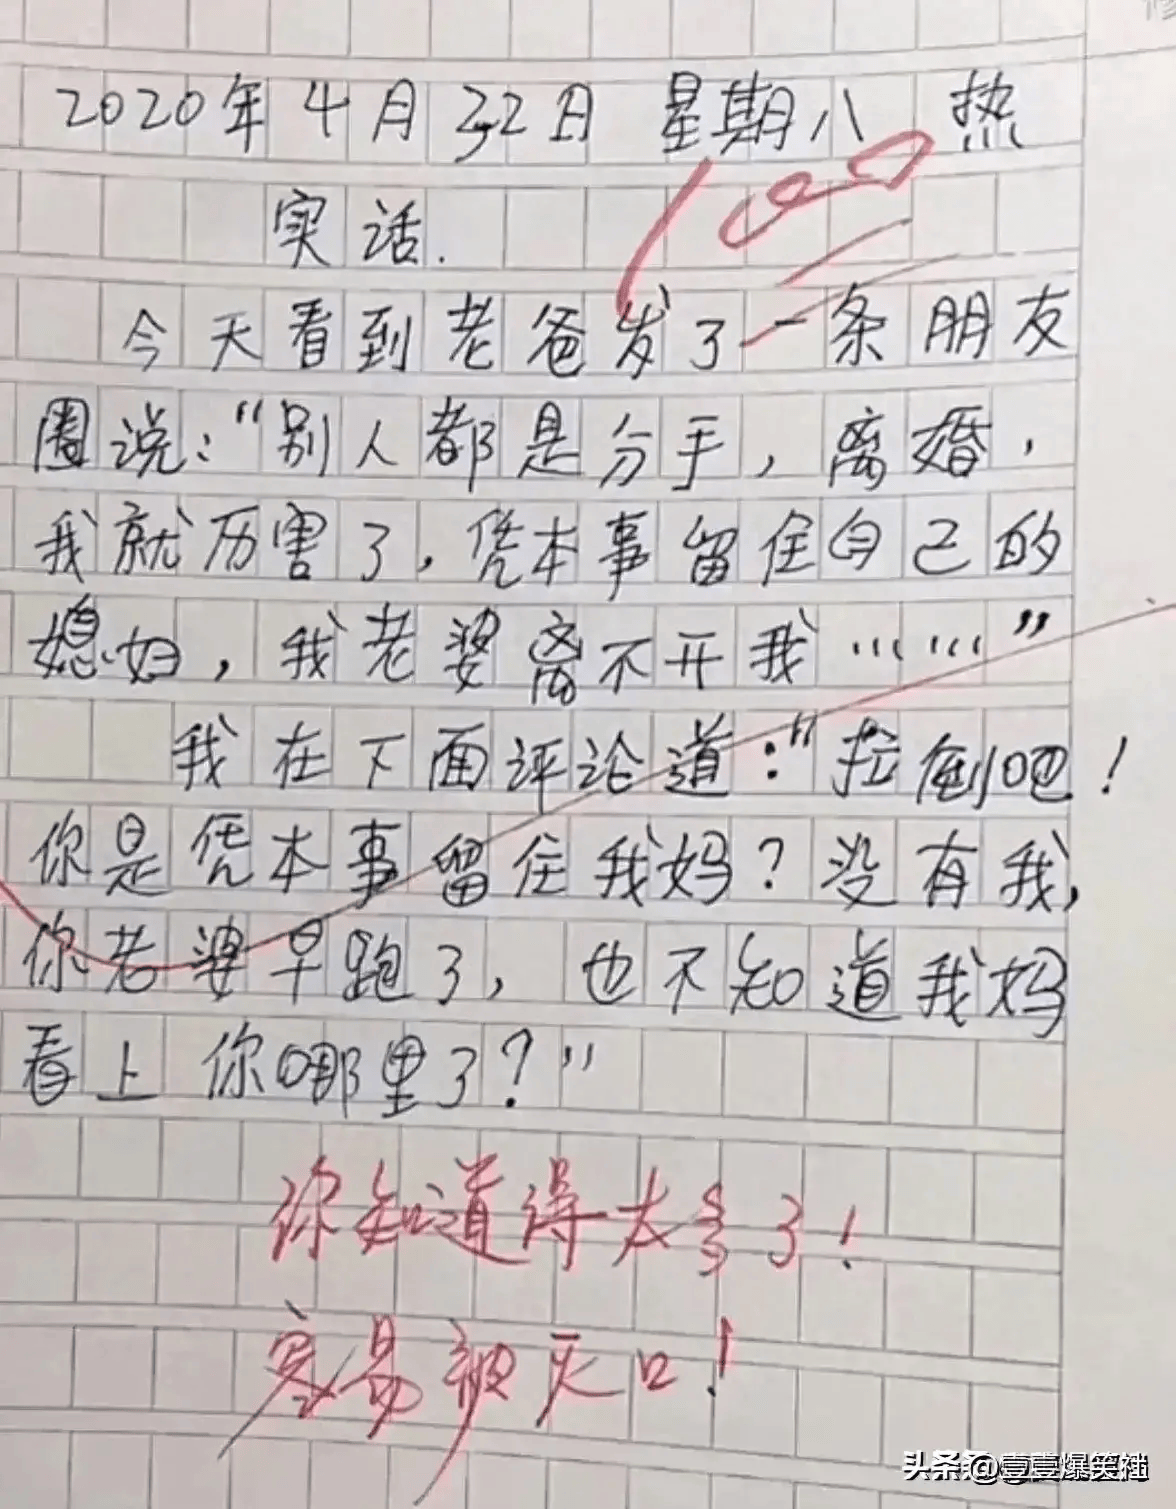 2020年4月32日 星期八 热
100
实话.
今天看到老爸发了一条朋友
圈说:“别人都是分手,离婚,
我就历害了,凭本事留住自己的
媳妇,我老婆离不开我……”
我在下面评论道:“拉倒吧!
你是凭本事留住我妈?没有我,
你老婆早跑了,也不知道我妈
看上你哪里了?”
你知道得太多了!
容易被灭口!
头条 @壹壹爆笑社